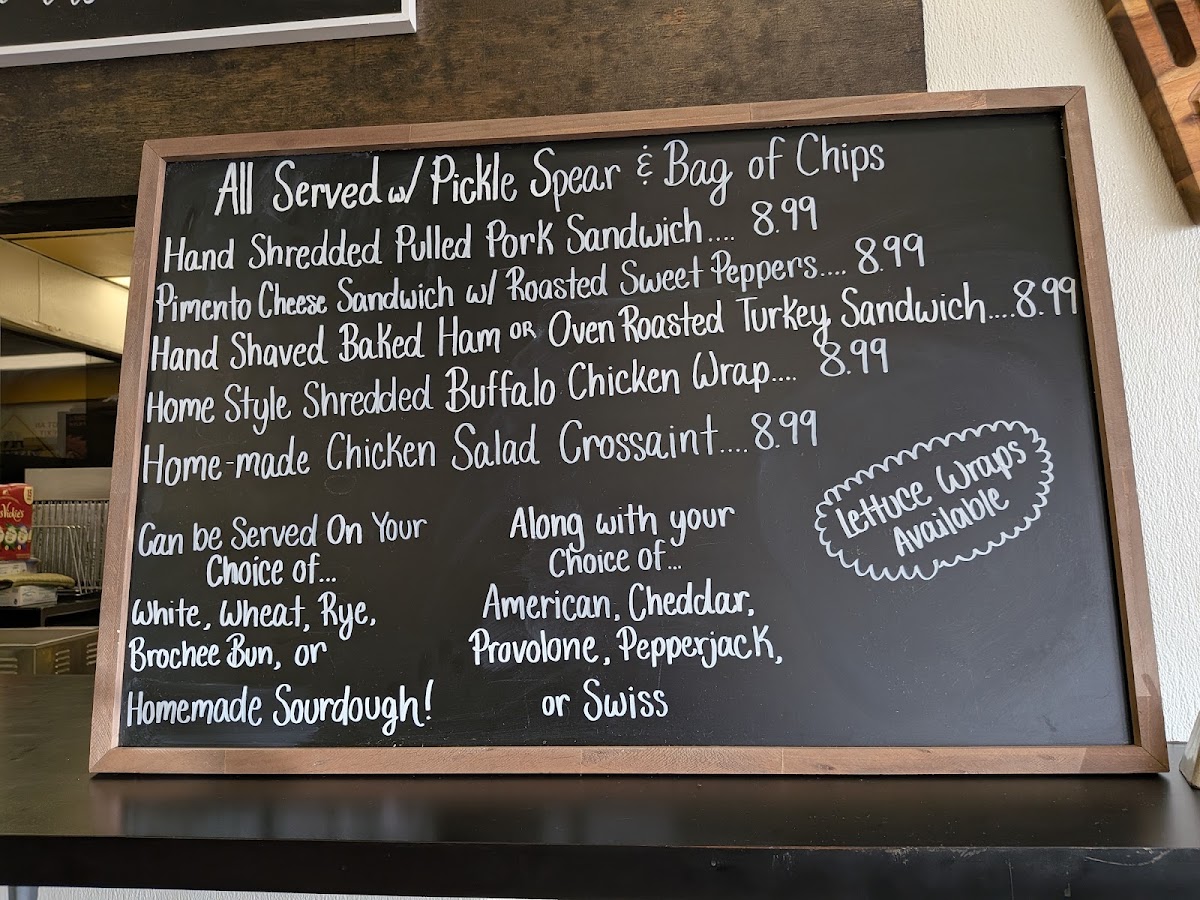 All Served w/ Pickle Spear & Bag of Chips
Hand Shredded Pulled Pork Sandwich.... 8.99
Pimento Cheese Sandwich w/ Roasted Sweet Peppers.... 8.99
Hand Shaved Baked Ham OR Oven Roasted Turkey Sandwich....8.99
Home Style Shredded Buffalo Chicken Wrap.... 8.99
Home-made Chicken Salad Crossaint....8.99
Can be Served On Your
Choice of...
White, Wheat, Rye,
Brochee Bun, or
Homemade Sourdough!
Along with your
Choice of...
American, Cheddar,
Provolone, Pepperjack,
or Swiss
Lettuce Wraps
Available